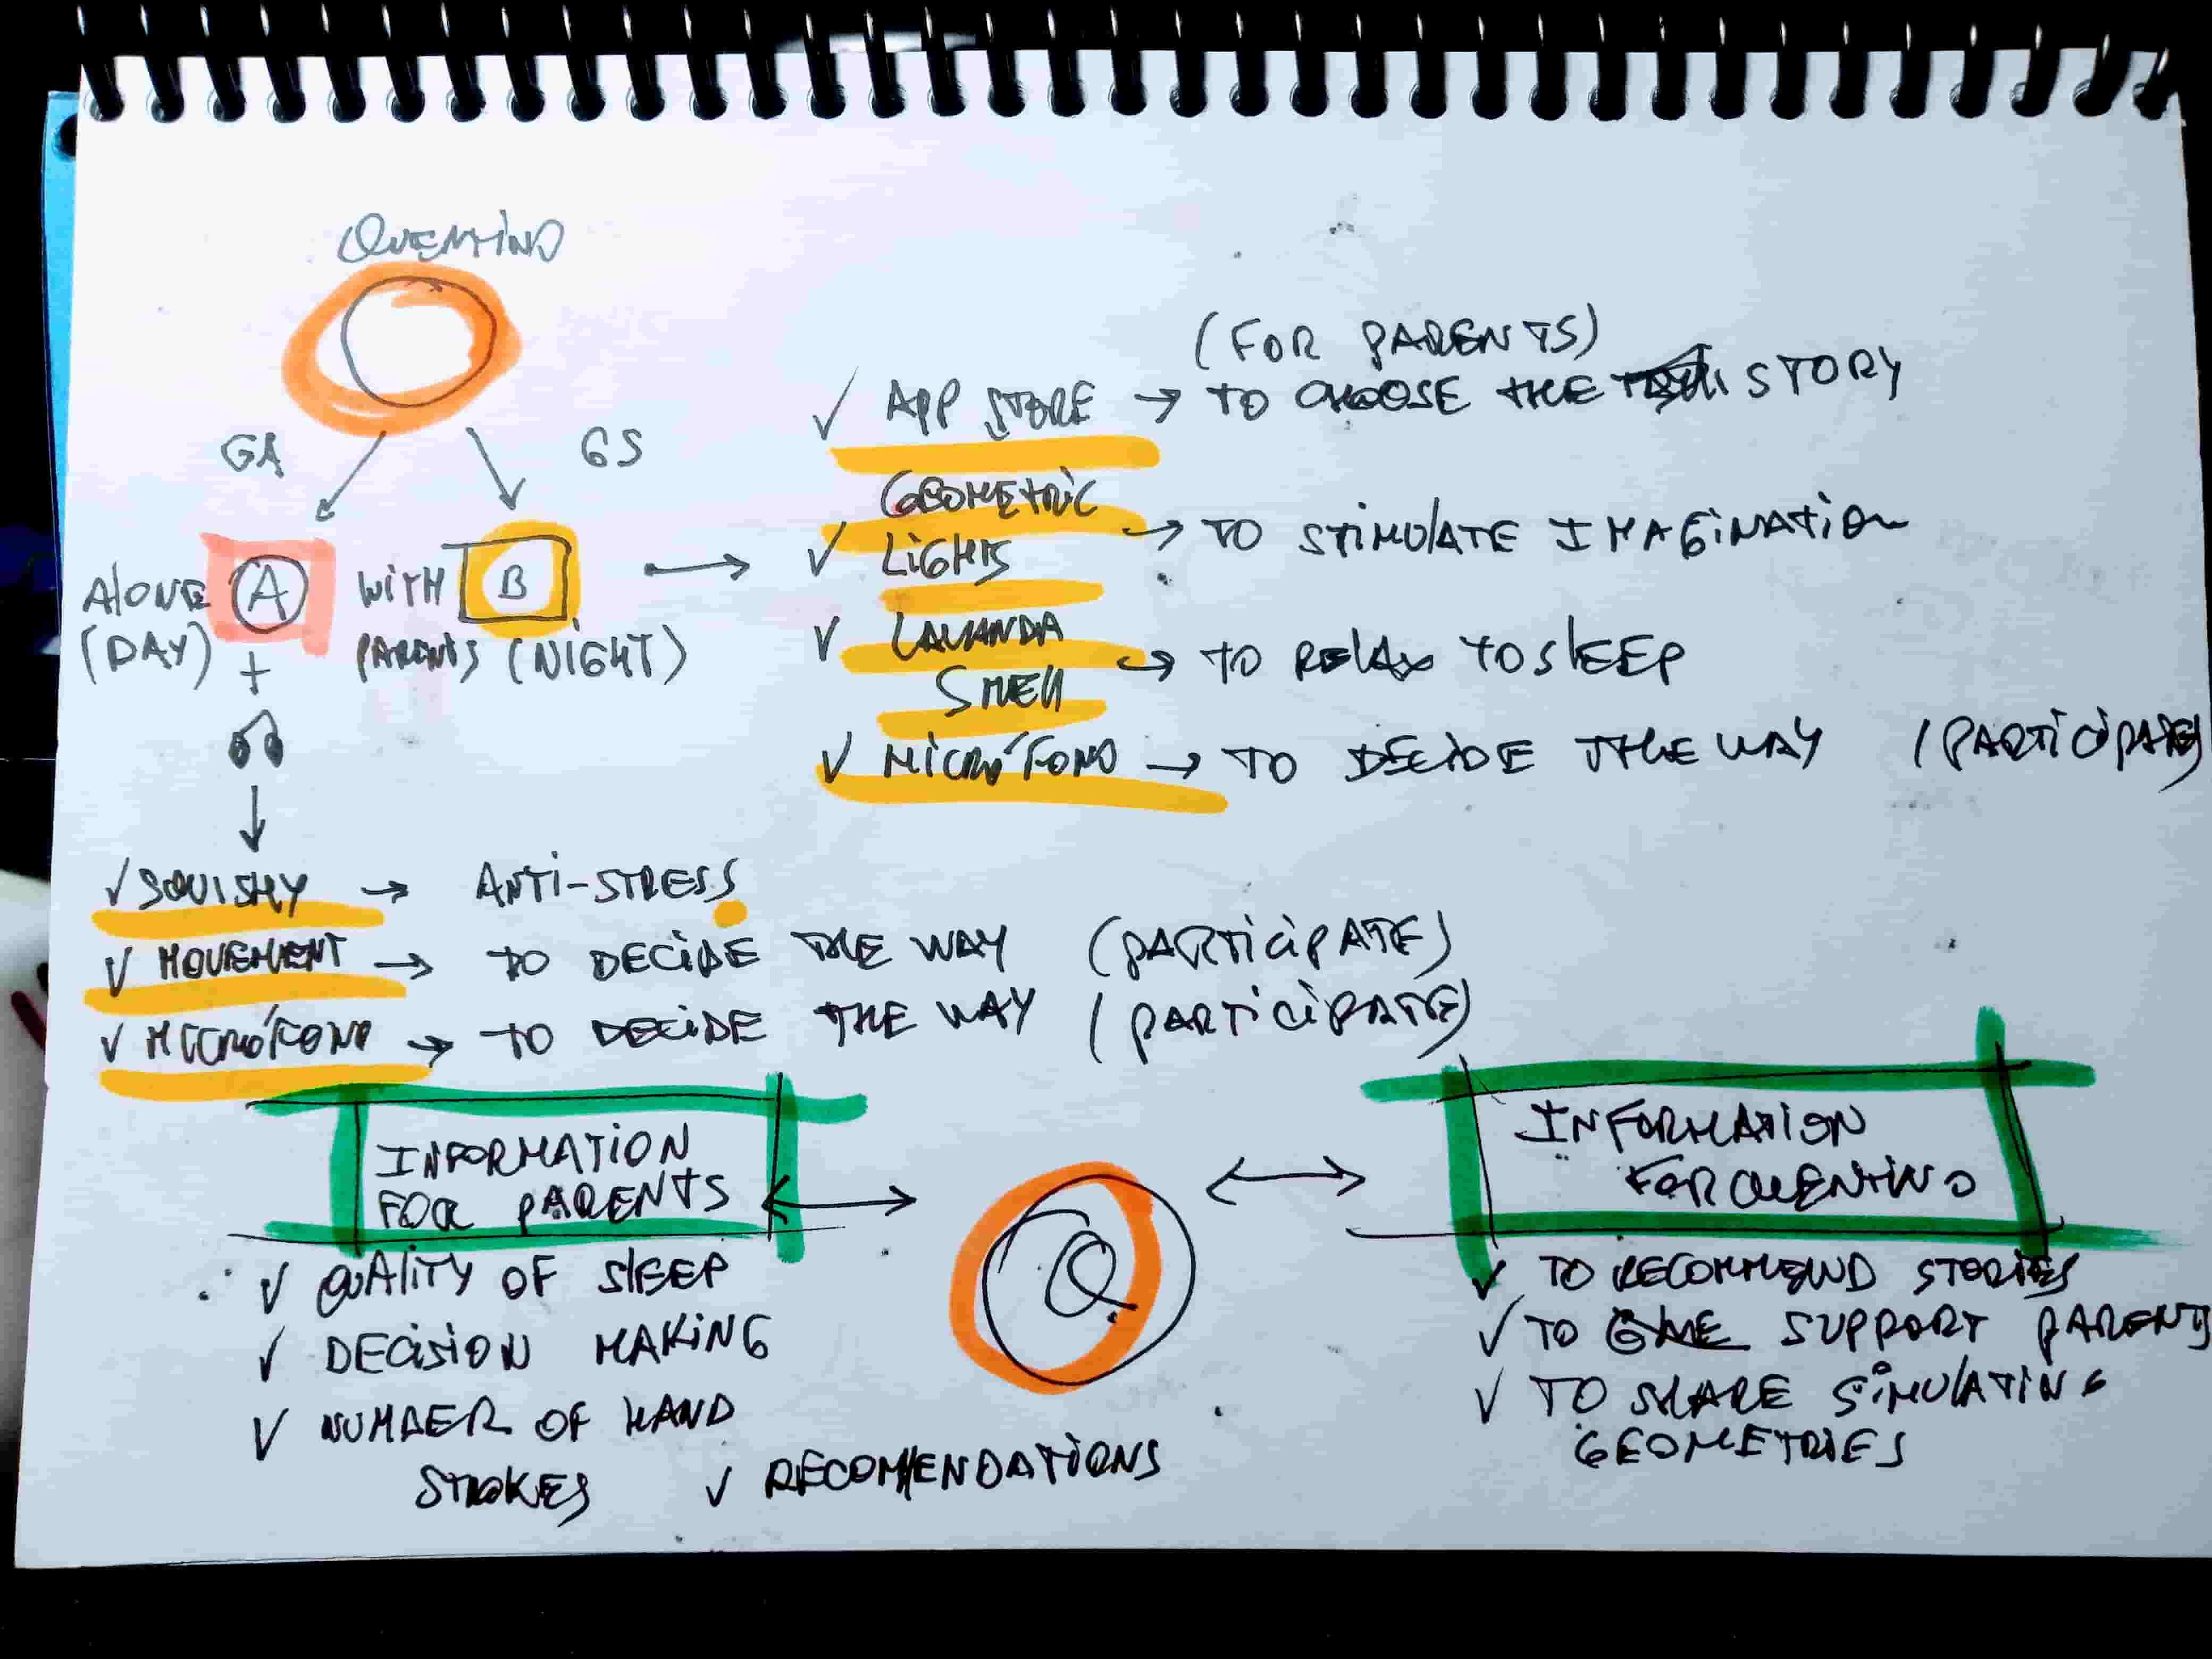 QUENTINO
GA
GS
ALONE (A)
(DAY)
+
WITH B
PARENTS (NIGHT)
(FOR PARENTS)
✓ APP STORE → TO CHOOSE THE STORY
GEOMETRIC
✓ LIGHTS → TO STIMULATE IMAGINATION
✓ LAVANDA
SMELL → TO RELAX TO SLEEP
✓ MICRÓFONO → TO DECIDE THE WAY (PARTICIPATE)
✓ SQUISHY → ANTI-STRESS
✓ MOVEMENT → TO DECIDE THE WAY (PARTICIPATE)
✓ MICRÓFONO → TO DECIDE THE WAY (PARTICIPATE)
INFORMATION
FOR PARENTS
✓ QUALITY OF SLEEP
✓ DECISION MAKING
✓ NUMBER OF HAND
STROKES
✓ RECOMMENDATIONS
Q
INFORMATION
FOR QUENTINO
✓ TO RECOMMEND STORIES
✓ TO SUPPORT PARENTS
✓ TO SHARE SIMULATING
GEOMETRIES